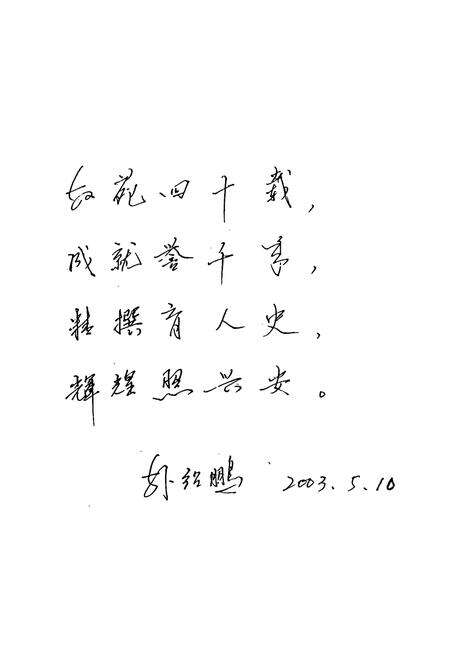 教苑四十载，
成就誉千，
精撰育人史，
輝煌照兴安。
孙绍鹏 2003.5.10